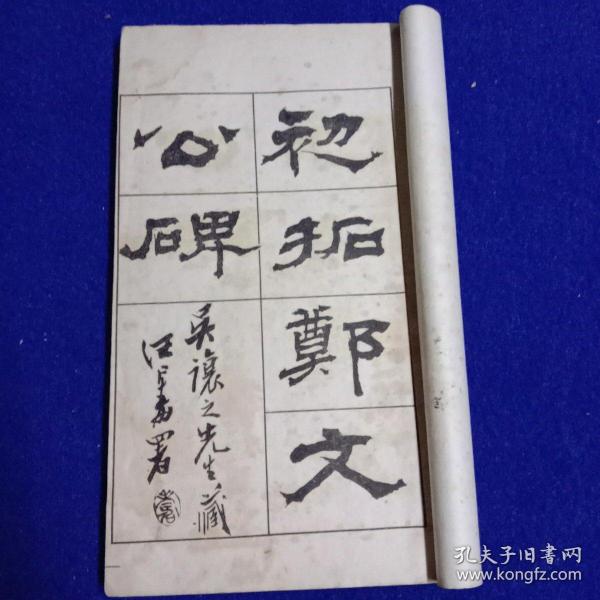 初拓鄭文
公碑
吳讓之先生藏
汪洵署
孔夫子旧书网
www.kongfz.com